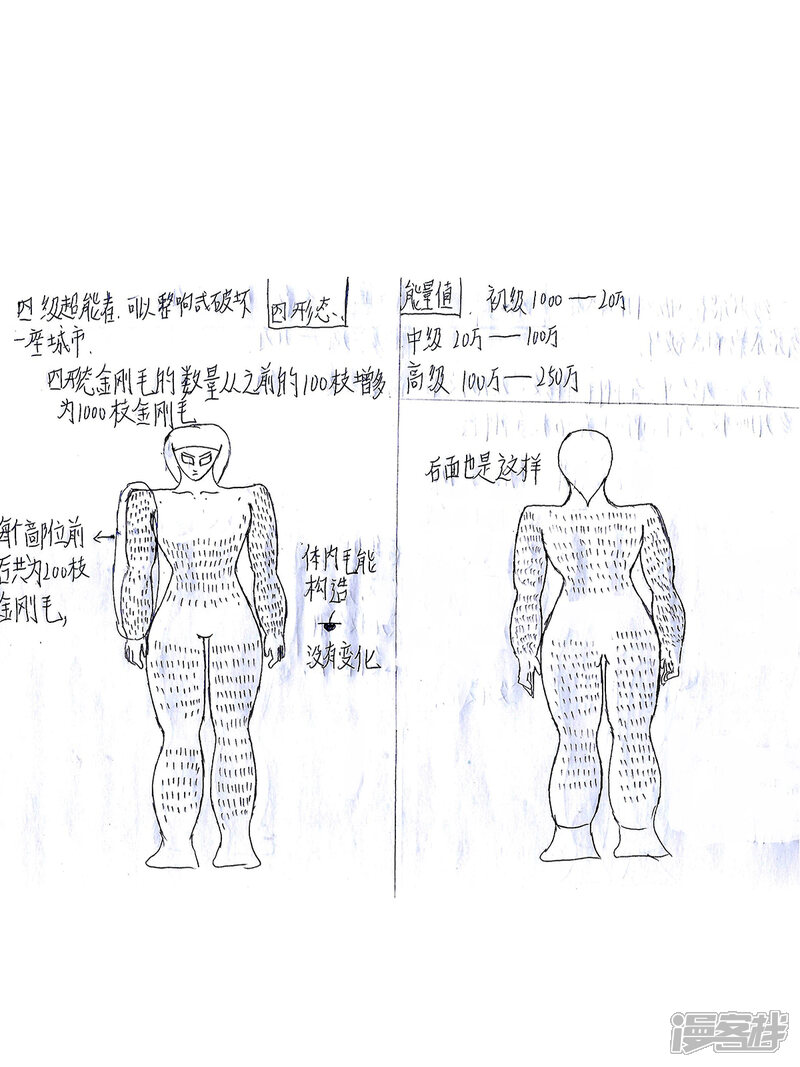 四级超能者.可以影响式破坏
一座城市.
四形态.
四形态金刚毛的数量从之前的100枝增多
为1000枝金刚毛
每个部位前
后共为200枝
金刚毛,
体内毛能
构造
没有变化
能量值
初级1000—20万
中级20万—100万
高级100万—250万
后面也是这样
漫客栈